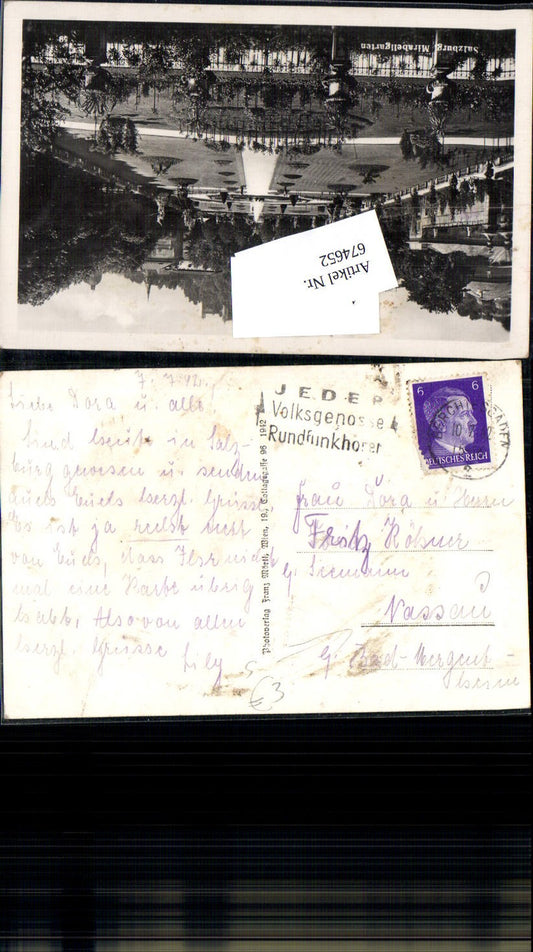 Salzburg, Mirabellgarten
59
Artikel Nr.
674652
7. 7. 42.
Liebe Dora u. alle
Sind heute in Salz-
burg gewesen u. senden
auch Euch herzl. Grüsse
Es ist ja recht nett
von Euch, dass Ihr nicht
mal eine Karte übrig
habt, Also von allen
herzl. Grüsse
Lily
Photoverlag Franz Mörtl, Wien, 19., Cottagegasse 96 1942
JEDER
Volksgenosse
Rundfunkhörer
6 6
DEUTSCHES REICH
Frau Dora u. Herrn
Fritz
Nassau
Bad-Mergent-
heim
€3